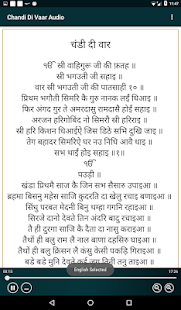 11:47
Chandi Di Vaar Audio
चंडी दी वार
ੴ स्री वाहिगुरू जी की फ़तह ॥
स्री भगउती जी सहाइ ॥
वार स्री भगउती जी की पातसाही १० ॥
प्रिथम भगौती सिमरि कै गुरु नानक लईं धिआइ ॥
फिर अंगद गुर ते अमरदासु रामदासै होईं सहाइ ॥
अरजन हरिगोबिंद नो सिमरौ स्री हरिराइ ॥
स्री हरि किशन धिआईऐ जिस डिठे सभि दुखि जाइ ॥
तेग बहादर सिमरिऐ घर नउ निधि आवै धाइ ॥
सभ थाईं होइ सहाइ ॥१॥
ੴ
पउड़ी ॥
खंडा प्रिथमै साज कै जिन सभ सैसारु उपाइआ ॥
ब्रहमा बिसनु महेस साजि कुदरति दा खेलु रचाइ बणाइआ ॥
सिंधु परबत मेदनी बिनु थम्हा गगनि रहाइआ ॥
सिरजे दानो देवते तिन अंदरि बादु रचाइआ ॥
तै ही दुरगा साजि कै दैता दा नासु कराइआ ॥
तैथों ही बलु राम लै नाल बाणा दहसिरु घाइआ ॥
तैथों ही बलु क्रिसन लै कंसु केसी पकड़ि गिराइआ ॥
बडे बडे मुनि देवते कई जुग तिनी तनु ताइआ ॥
00:15
English Selected
17:26